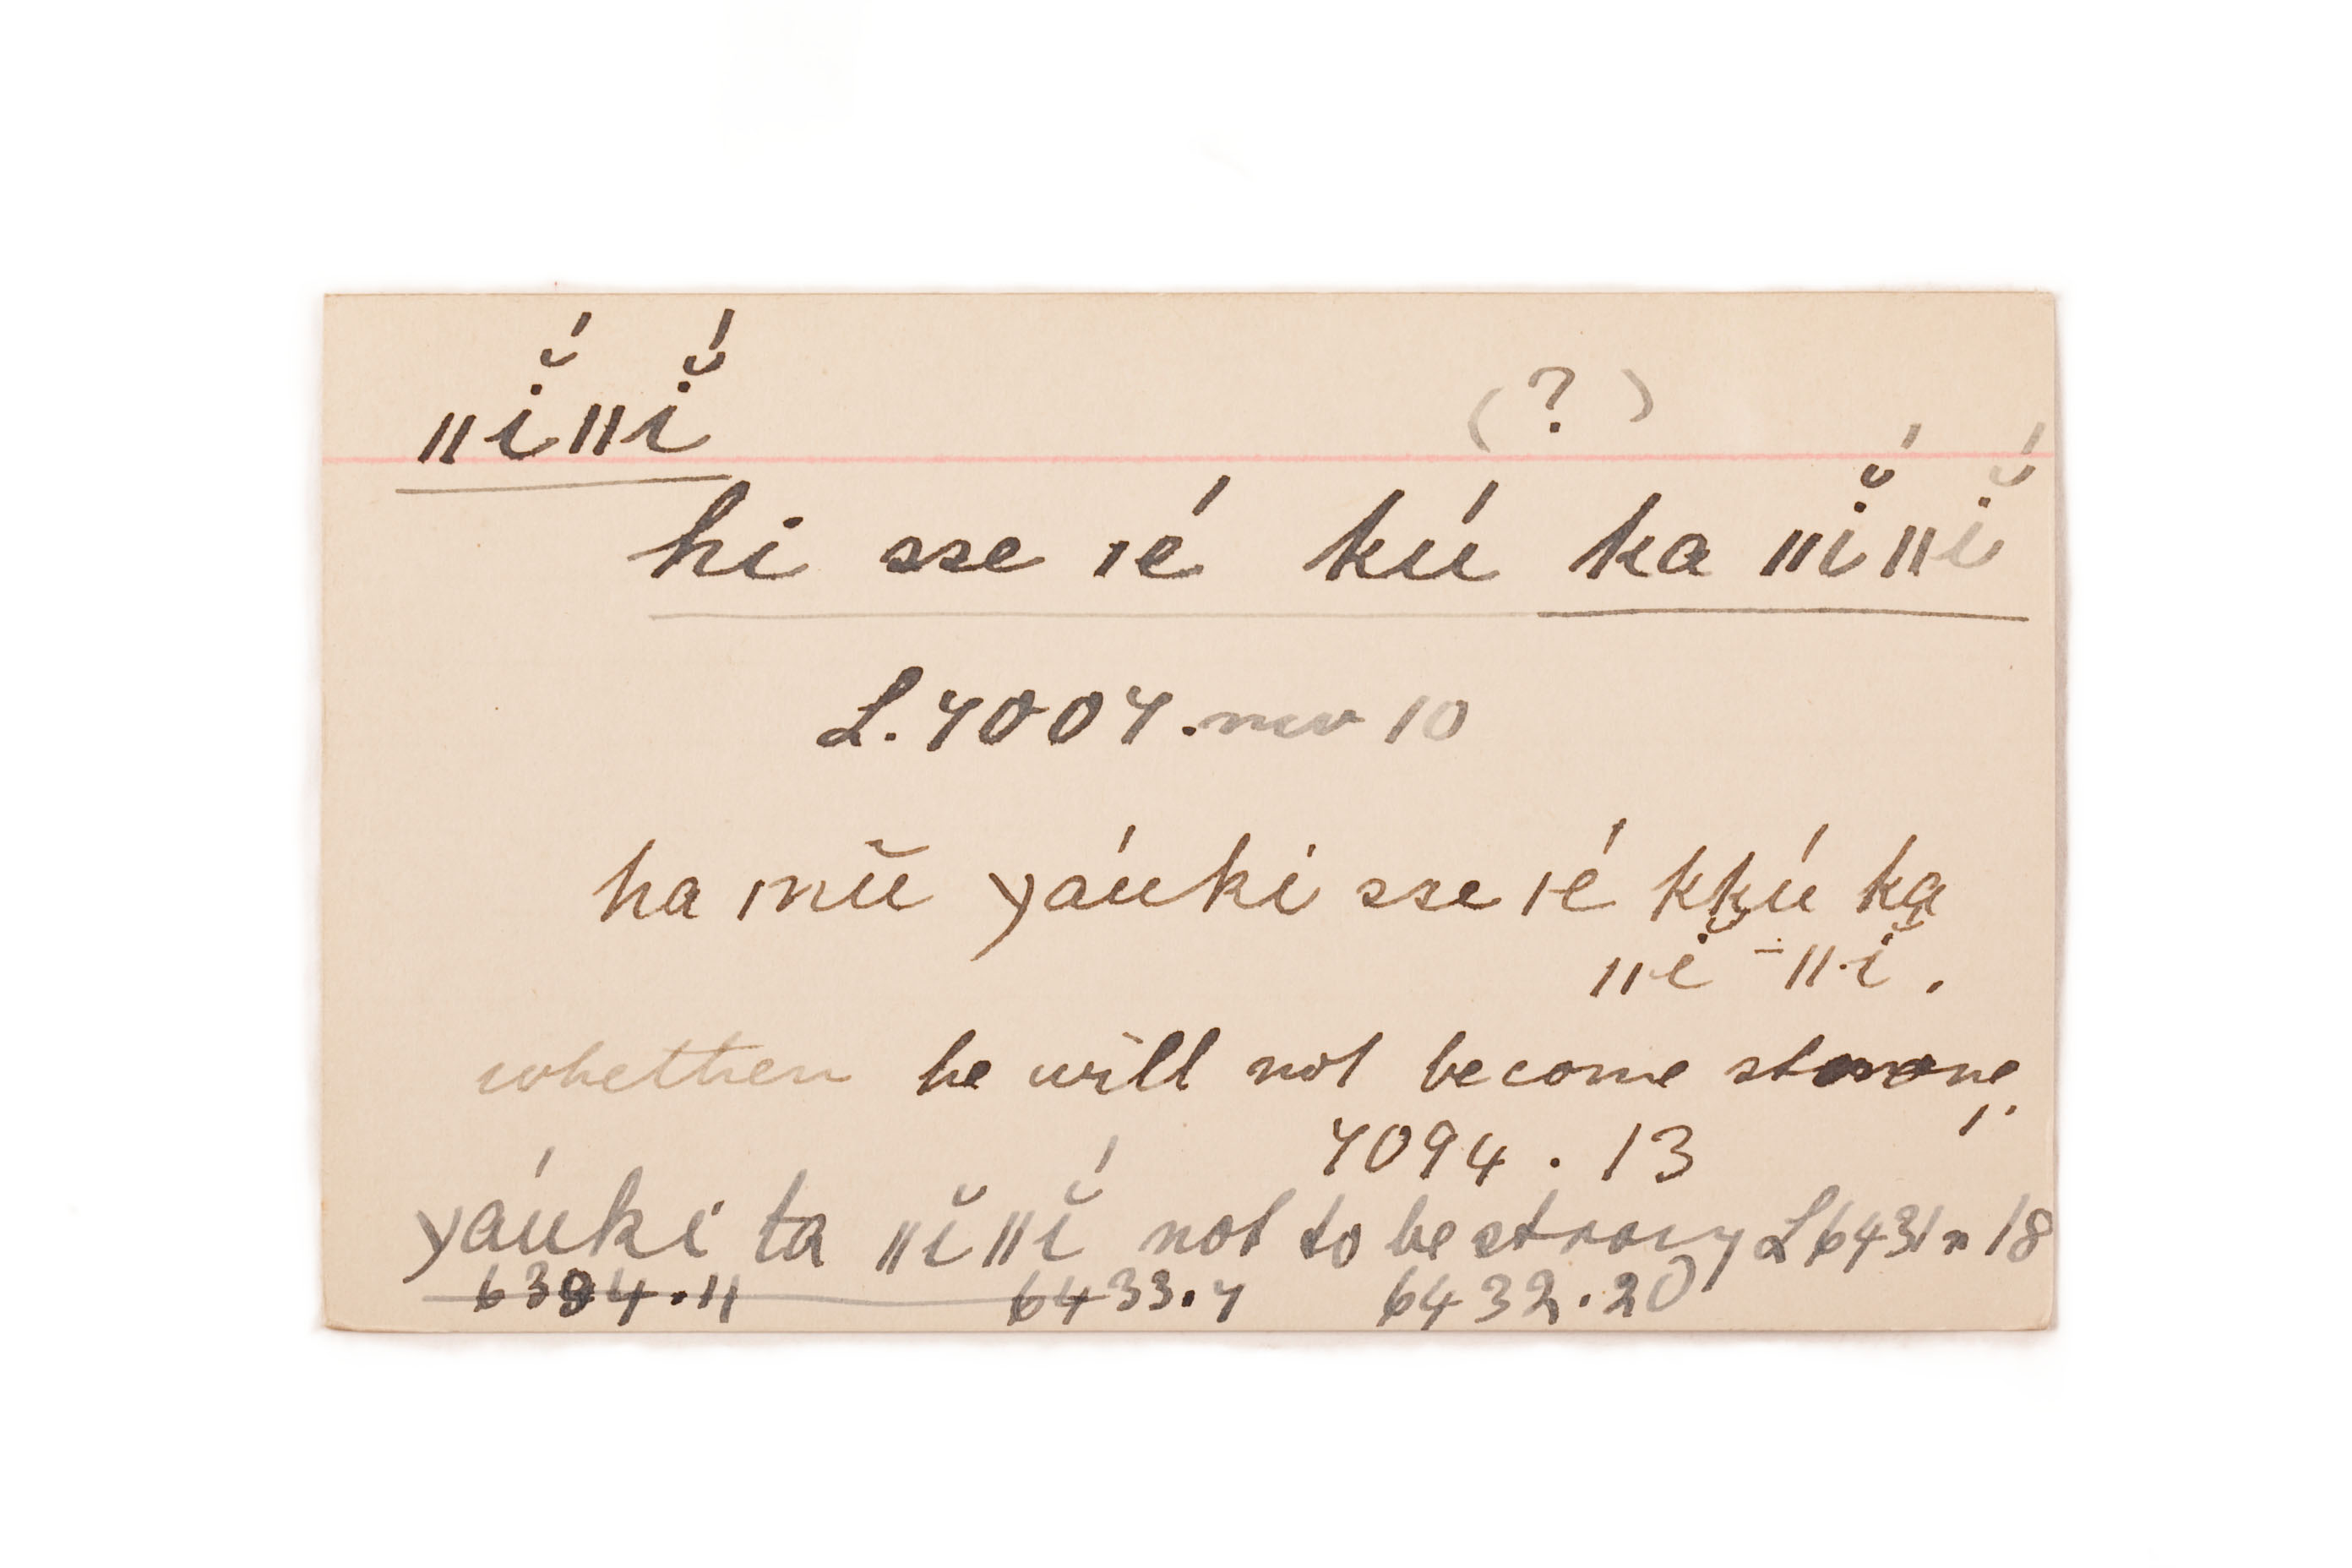 ǁĭ́ǁĭ́ (?)
hi sse ǀé kú ka ǁĭ́ǁĭ́
L. 7007. rev 10
ha ǀnŭ yáuki sse ǀé kkú ka
ǁĭ-ǁĭ,
whether he will not become strong
7094. 13
yáuki ta ǁĭǁĭ́ not to be strong L 6431 r 18
6384.11 6433.7 6432.20